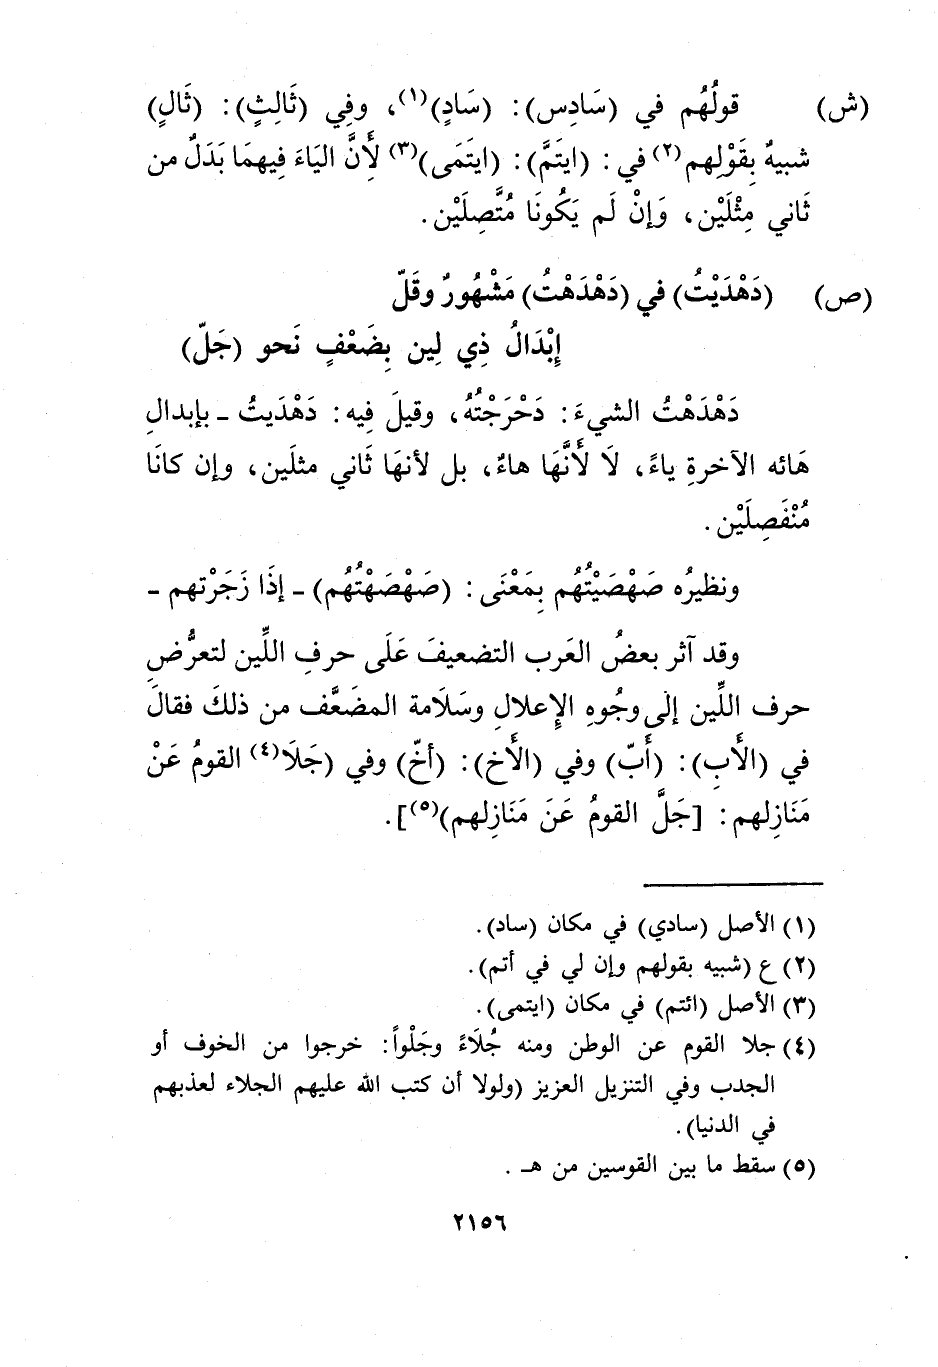 (ش) قولُهُم في (سَادِس): (سَادٍ)(١)، وفِي (ثَالِثٍ): (ثَالٍ)
شبيهٌ بِقَوْلِهم(٢) في: (ايتَمَّ): (ايتَمَى)(٣) لِأَنَّ اليَاءَ فِيهمَا بَدَلٌ من
ثَاني مِثْلَيْن، وَإنْ لَم يَكُونَا مُتَّصِلَيْن.
(ص) (دَهْدَيْتُ) في (دَهْدَهْتُ) مَشْهُورٌ وقَلّ
إبْدَالُ ذِي لِين بِضَعْفٍ نَحو (جَلّ)
دَهْدَهْتُ الشيءَ: دَحْرَجْتُهُ، وقيلَ فِيه: دَهْدَيتُ ـ بإبدالِ
هَائه الآخرةِ ياءً، لَا لَأنَّهَا هاءٌ، بل لأنهَا ثَاني مثلَين، وإن كانَا
مُنْفَصِلَيْن.
ونظيرُه صَهْصَيْتُهُم بِمَعْنَى: (صَهْصَهْتُهُم) ـ إذَا زَجَرْتهم ـ
وقد آثر بعضُ العَرب التضعيفَ عَلَى حرفِ اللِّين لتعرُّضِ
حرف اللِّين إلى وجُوهِ الإعلالِ وسَلَامة المضَعَّف من ذلكَ فقالَ
في (الأَبِ): (أَبّ) وفي (الأَخ): (أخّ) وفي (جَلَا(٤) القومُ عَنْ
مَنَازِلهم: [جَلَّ القومُ عَنَ مَنَازِلهم)(٥)].
(١) الأصل (سادي) في مكان (ساد).
(٢) ع (شبيه بقولهم وإن لي في أتم).
(٣) الأصل (ائتم) في مكان (ايتمى).
(٤) جلا القوم عن الوطن ومنه جُلَاءً وجَلْواً: خرجوا من الخوف أو
الجدب وفي التنزيل العزيز (ولولا أن كتب الله عليهم الجلاء لعذبهم
في الدنيا).
(٥) سقط ما بين القوسين من هـ.
٢١٥٦